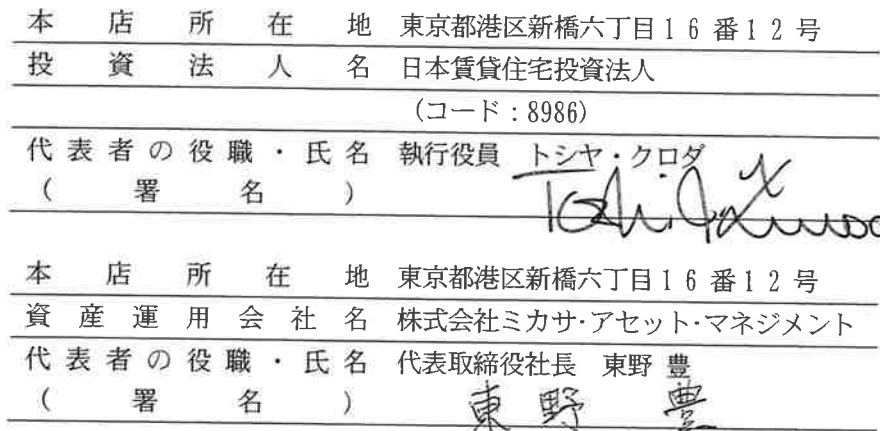 本店所在地 東京都港区新橋六丁目16番12号
投資法人名 日本賃貸住宅投資法人
(コード:8986)
代表者の役職・氏名 執行役員 トシヤ・クロダ
(署名)
本店所在地 東京都港区新橋六丁目16番12号
資産運用会社名 株式会社ミカサ・アセット・マネジメント
代表者の役職・氏名 代表取締役社長 東野 豊
(署名) 東野 豊